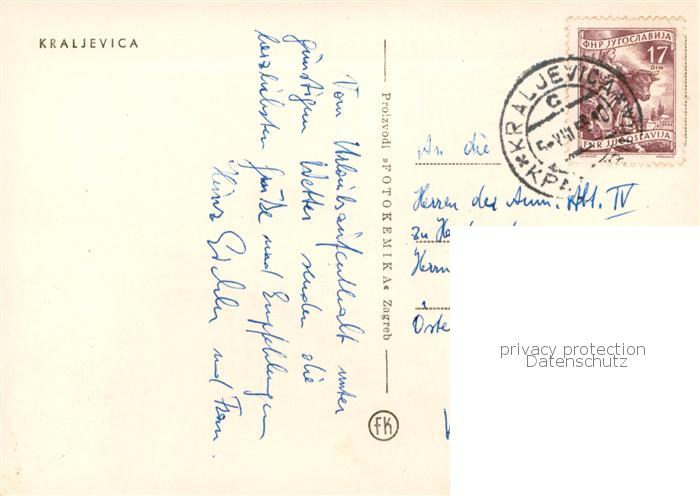 KRALJEVICA
Vom Urlaubsaufenthalt unter
günstigem Wetter senden die
herzlichsten Grüße und Empfehlungen
Heinz und Frau
Proizvodi »FOTOKEMIKA« Zagreb
FK
ФНР ЈУГОСЛАВИЈА
17
DIN
FNR JUGOSLAVIJA
KRALJEVICA
C
An die
Herren der Amm. Abt. IV
zu
Herrn
privacy protection
Datenschutz